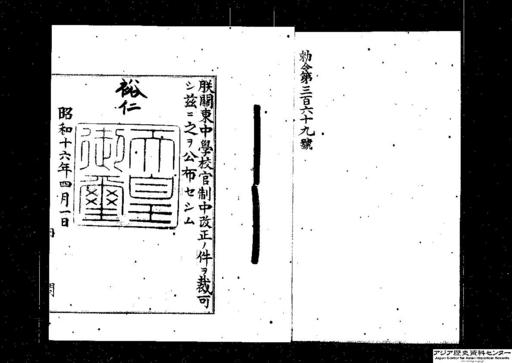 勅令第三百六十九號
朕關東中學校官制中改正ノ件ヲ裁可
シ茲ニ之ヲ公布セシム
裕仁
天皇御璽
昭和十六年四月一日
アジア歴史資料センター
Japan Center for Asian Historical Records